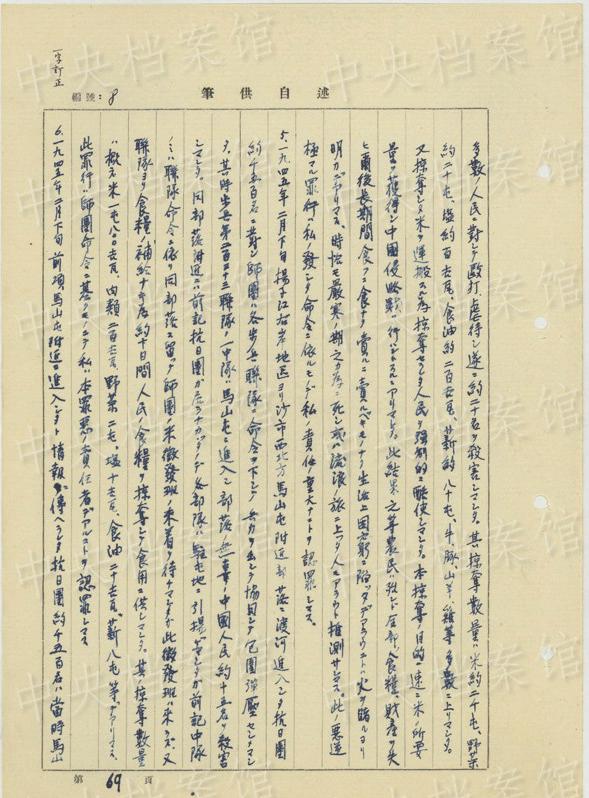 一字訂正
編號：8
筆供自述
多數ノ人民ニ對シテ毆打、虐待シ遂ニ約二十名ヲ殺害シマシタ。其ノ掠奪數量ハ米約二千屯、野菜
約二十屯、塩約百瓩、食油約二百瓩、薪約八十屯、牛、豚、山羊、雞等多數ニ上リマシタ。
又掠奪シタ米ヲ運搬スル為掠奪セシ人民ヲ強制的ニ酷使シマシタ。本掠奪ノ目的ハ速ニ米ノ所要
量ヲ獲得シ中國侵略戰ヲ行ハントスルニアリマシタ。此ノ結果之等農民ハ殆ンド全部ノ食糧、財產ヲ失
ヒ爾後長期間食フニ食ナク賣ルニ賣ルベキモノナク生活上困窮ニ陷ッタデアラウコトハ火ヲ睹ルヨリ
明カデアリマス。時恰モ嚴寒ノ期之ガ為ニ死シ或ハ流浪ノ旅ニ上ッタ人モアラウト推測サレマス。此ノ惡逆
極マル罪行ハ私ノ發シタ命令ニ依ルモノデ私ノ責任重大ナルコトヲ認罪シマス。
5.一九四五年二月下旬揚子江右岸地區ヨリ沙市西北方馬山屯附近部落ニ渡河進入シタ抗日團
約千五百名ニ對シ師團ハ各步兵聯隊ニ命令ヲ下シ兵力ヲ出シテ協同シテ包圍彈壓セシメマシ
タ。其ノ時步兵第二百三十三聯隊ノ一中隊ハ馬山屯ニ進入シ部落無辜ノ中國人民約十五名ヲ殺害
シマシタ。同部落附近ニハ前記抗日團ガ居ラナカッタノデ各部隊ハ駐屯地ニ引揚ゲマシタガ前記中隊
ノミハ聯隊命令ニ依リ同部落ニ留リ師團ノ米徵發班ノ來着ヲ待チマシタガ此徵發班ハ來ラズ又
聯隊ヨリ食糧ノ補給ナキ為約十日間人民ノ食糧ヲ掠奪シテ食用ニ供シマシタ。其ノ掠奪數量
ハ概ネ米一屯八〇〇瓩、肉類二百瓩、野菜二屯、塩十瓩、食油二十瓩、薪八屯等デアリマス。
此罪行ハ師團命令ニ基クモノニテ私ハ本罪惡ノ責任者デアルコトヲ認罪シマス
6.一九四五年二月下旬前項馬山屯附近ニ進入シタト情報ヲ傳ヘラレタ抗日團約千五百名ハ當時馬山
第69頁